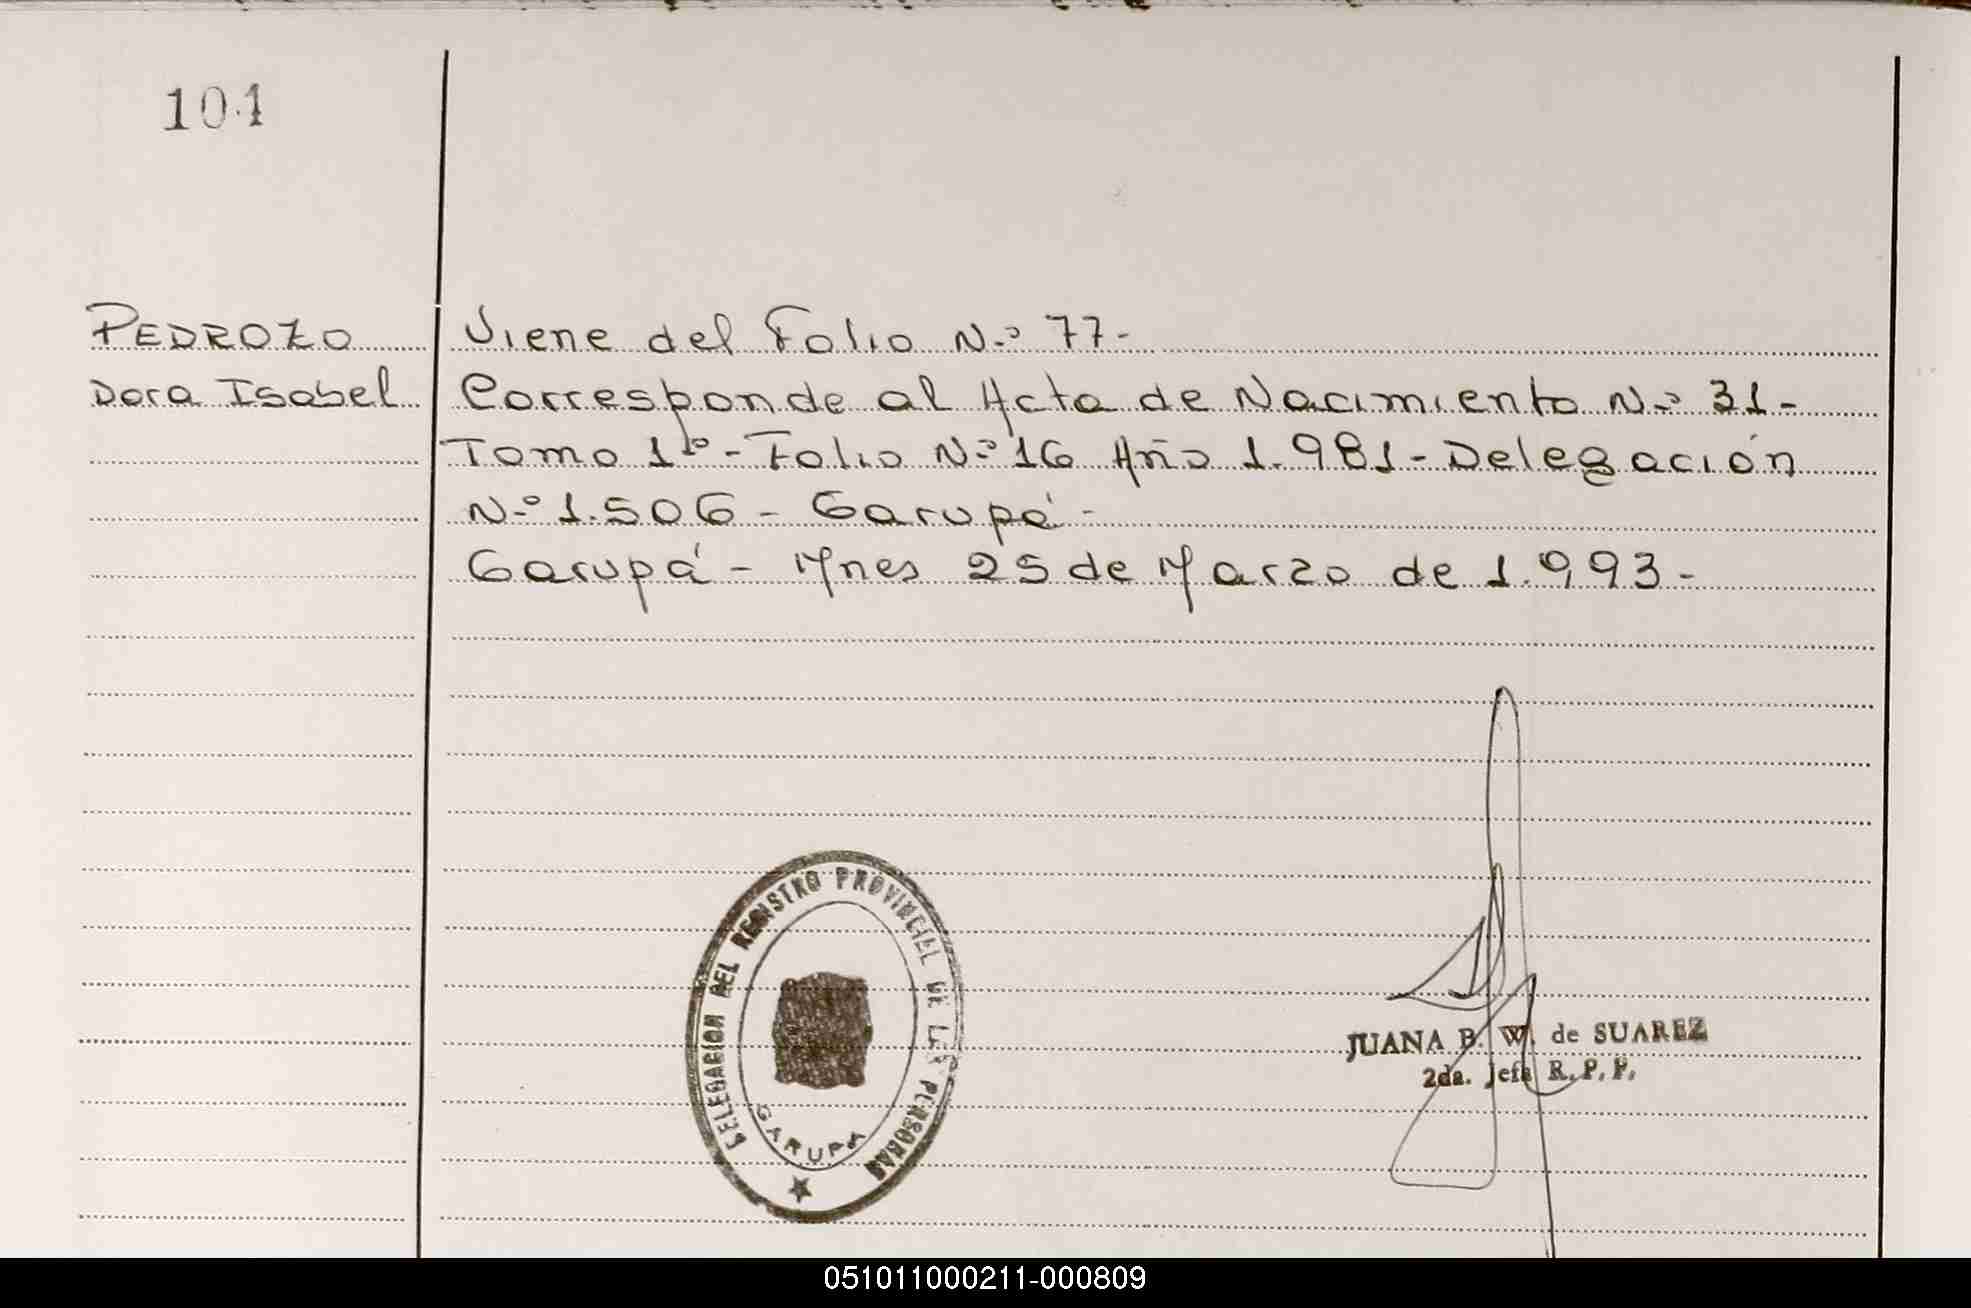 101
PEDROZO
Dora Isabel
Viene del Folio N.º 77-
Corresponde al Acta de Nacimiento N.º 31-
Tomo 1º - Folio N.º 16 Año 1.981 - Delegación
N.º 1.506 - Garupá -
Garupá - Mnes 25 de Marzo de 1.993-
DELEGACION DEL REGISTRO PROVINCIAL DE LAS PERSONAS
GARUPA
JUANA B. W. de SUAREZ
2da. Jefa R. P. P.
051011000211-000809